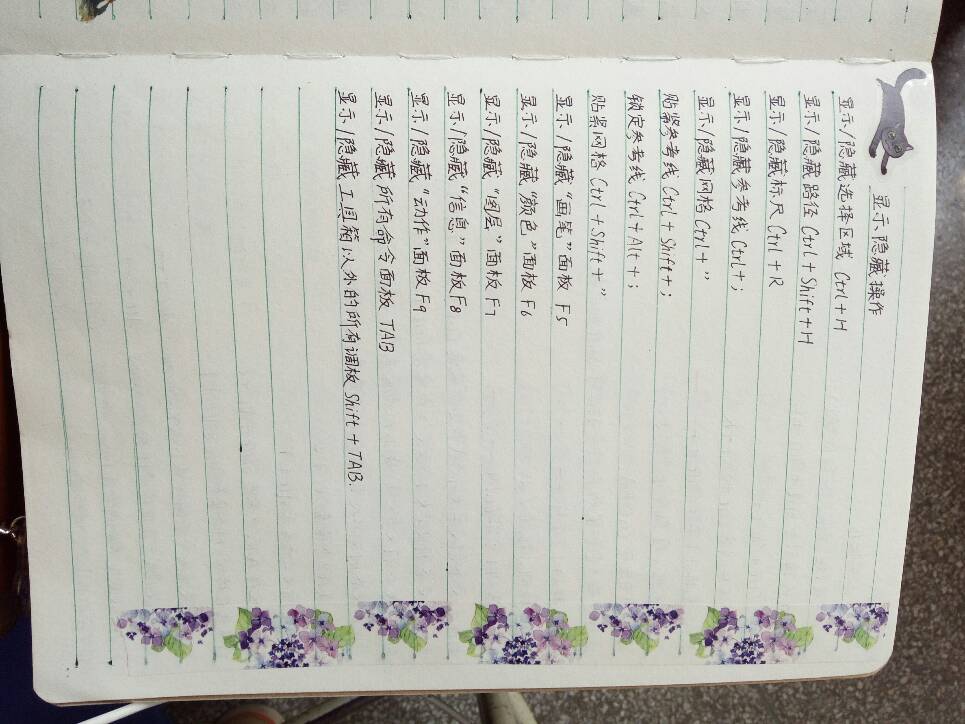 显示隐藏操作
显示/隐藏选择区域 Ctrl+H
显示/隐藏路径 Ctrl+Shift+H
显示/隐藏标尺 Ctrl+R
显示/隐藏参考线 Ctrl+;
显示/隐藏网格 Ctrl+"
贴紧参考线 Ctrl+Shift+;
锁定参考线 Ctrl+Alt+;
贴紧网格 Ctrl+Shift+"
显示/隐藏“画笔”面板 F5
显示/隐藏“颜色”面板 F6
显示/隐藏“图层”面板 F7
显示/隐藏“信息”面板 F8
显示/隐藏“动作”面板 F9
显示/隐藏所有命令面板 TAB
显示/隐藏工具箱以外的所有调板 Shift+TAB.